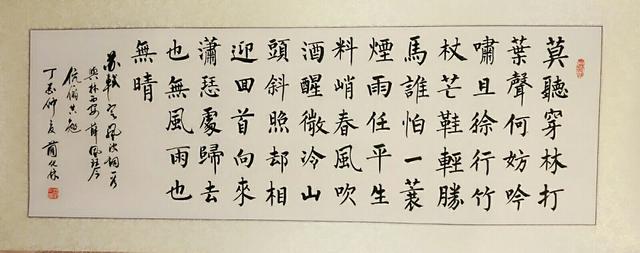 莫聽穿林打
葉聲何妨吟
嘯且徐行竹
杖芒鞋輕勝
馬誰怕一蓑
煙雨任平生
料峭春風吹
酒醒微冷山
頭斜照却相
迎回首向來
瀟瑟處歸去
也無風雨也
無晴
蘇軾定風波詞一首
伉儷共勉
仲夏